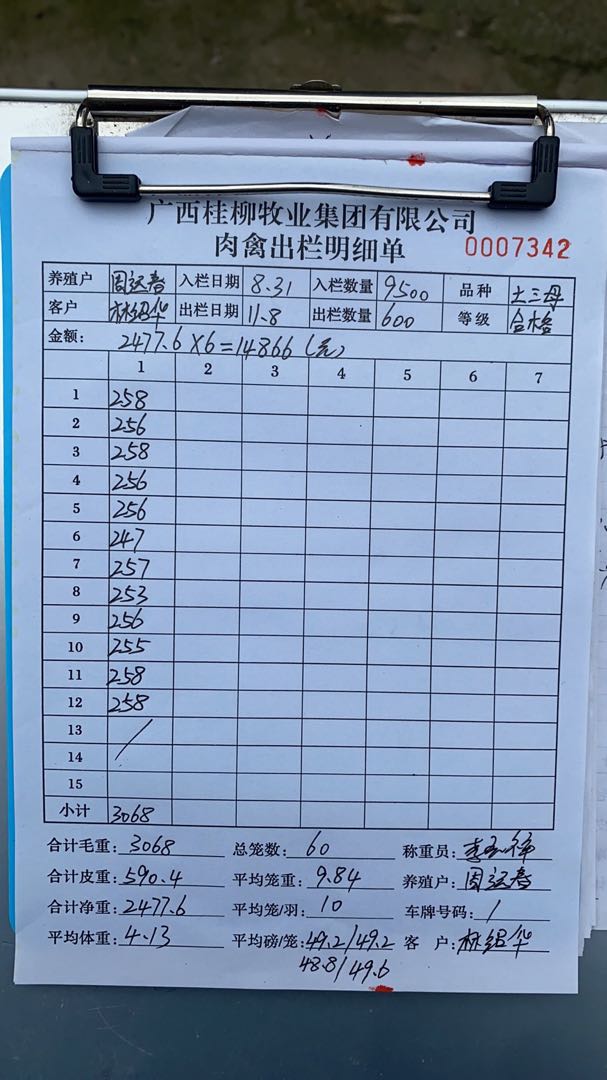 广西桂柳牧业集团有限公司
肉禽出栏明细单 0007342
养殖户 周运春 入栏日期 8.31 入栏数量 9500 品种 土三母
客户 林绍华 出栏日期 11.8 出栏数量 600 等级 合格
金额: 2477.6×6=14866(元)
1 2 3 4 5 6 7
1 258
2 256
3 258
4 256
5 256
6 247
7 257
8 253
9 256
10 255
11 258
12 258
13 /
14
15
小计 3068
合计毛重: 3068 总笼数: 60 称重员:
合计皮重: 590.4 平均笼重: 9.84 养殖户: 周运春
合计净重: 2477.6 平均笼/羽: 10 车牌号码: /
平均体重: 4.13 平均磅/笼: 49.2/49.2 客 户: 林绍华
48.8/49.6